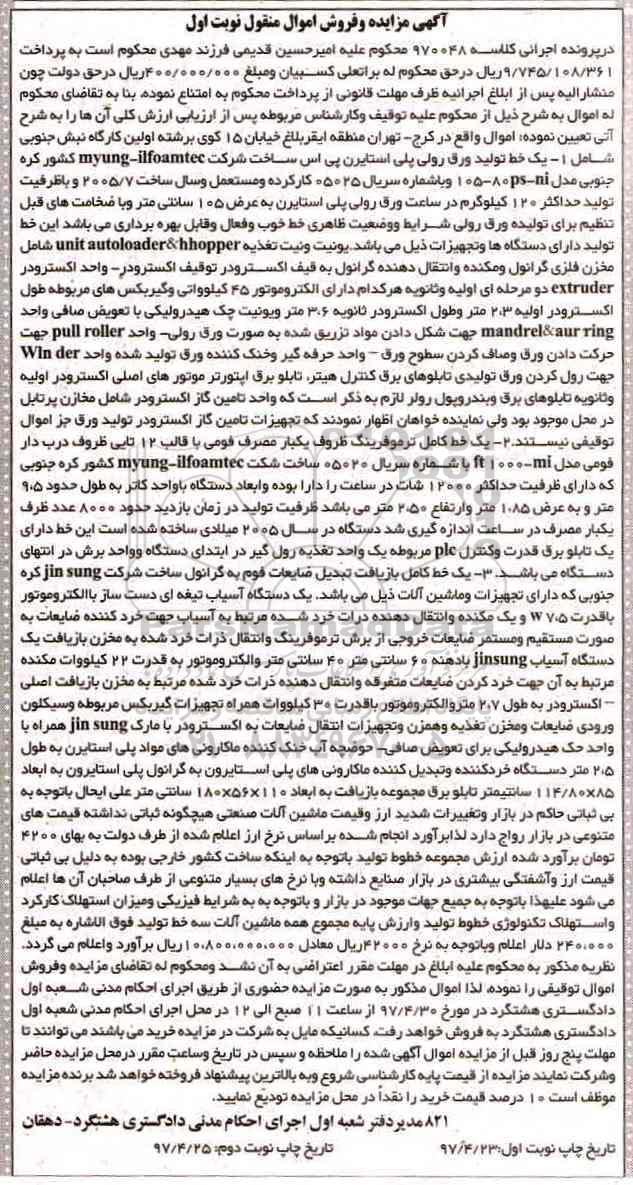 آگهی مزایده وفروش اموال منقول نوبت اول
درپرونده اجرائی کلاسه ۹۷۰۰۴۸ محکوم علیه امیرحسین قدیمی فرزند مهدی محکوم است به پرداخت
۹/۷۴۵/۱۰۸/۳۶۱ریال درحق محکوم له براتعلی کسبیان ومبلغ ۴۰۰/۰۰۰/۰۰۰ریال درحق دولت چون
منشارالیه پس از ابلاغ اجرائیه ظرف مهلت قانونی از پرداخت محکوم به امتناع نموده، بنا به تقاضای محکوم
له اموال به شرح ذیل از محکوم علیه توقیف وکارشناس مربوطه پس از ارزیابی ارزش کلی آن ها را به شرح
آتی تعیین نموده: اموال واقع در کرج- تهران منطقه ایقربلاغ خیابان ۱۵ کوی برشته اولین کارگاه نبش جنوبی
شامل ۱- یک خط تولید ورق رولی پلی استایرن پی اس ساخت شرکت myung-ilfoamtec کشور کره
جنوبی مدل ps-ni۱۰۵-۸۰ وباشماره سریال ۰۵۰۲۵ کارکرده ومستعمل وسال ساخت ۲۰۰۵/۷ و باظرفیت
تولید حداکثر ۱۲۰ کیلوگرم در ساعت ورق رولی پلی استایرن به عرض ۱۰۵ سانتی متر وبا ضخامت های قبل
تنظیم برای تولیده ورق رولی شرایط ووضعیت ظاهری خط خوب وفعال وقابل بهره برداری می باشد این خط
تولید دارای دستگاه ها وتجهیزات ذیل می باشد.یونیت ونیت تغذیه unit autoloader&hhopper شامل
مخزن فلزی گرانول ومکنده وانتقال دهنده گرانول به قیف اکسترودر توقیف اکسترودر- واحد اکسترودر
extruder دو مرحله ای اولیه وثانویه هرکدام دارای الکتروموتور ۴۵ کیلوواتی وگیربکس های مربوطه طول
اکسترودر اولیه ۲،۳ متر وطول اکسترودر ثانویه ۳،۶ متر ویونیت چک هیدرولیکی با تعویض صافی واحد
mandrel&aur ring جهت شکل دادن مواد تزریق شده به صورت ورق رولی- واحد pull roller جهت
حرکت دادن ورق وصاف کردن سطوح ورق – واحد حرفه گیر وخنک کننده ورق تولید شده واحد Wln der
جهت رول کردن ورق تولیدی تابلوهای برق کنترل هیتر، تابلو برق اپتورتر موتور های اصلی اکسترودر اولیه
وثانویه تابلوهای برق وبندرویول رولر لازم به ذکر است که واحد تامین گاز اکسترودر شامل مخازن پرتابل
در محل موجود بود ولی نماینده خواهان اظهار نمودند که تجهیزات تامین گاز اکسترودر تولید ورق جز اموال
توقیفی نیستند.۲- یک خط کامل ترموفرینگ ظروف یکبار مصرف فومی با قالب ۱۲ تایی ظروف درب دار
فومی مدل ft۱۰۰۰-mi با شماره سریال ۰۵۰۲۰ ساخت شکت myung-ilfoamtec کشور کره جنوبی
که دارای ظرفیت حداکثر ۱۲۰۰۰ شات در ساعت را دارا بوده وابعاد دستگاه باواحد کاتر به طول حدود ۹،۵
متر و به عرض ۱،۸۵ متر وارتفاع ۲،۵۰ متر می باشد ظرفیت تولید در زمان بازدید حدود ۸۰۰۰ عدد ظرف
یکبار مصرف در ساعت اندازه گیری شد دستگاه در سال ۲۰۰۵ میلادی ساخته شده است این خط دارای
یک تابلو برق قدرت وکنترل plc مربوطه یک واحد تغذیه رول گیر در ابتدای دستگاه وواحد برش در انتهای
دستگاه می باشد. ۳- یک خط کامل بازیافت تبدیل ضایعات فوم به گرانول ساخت شرکت jin sung کره
جنوبی که دارای تجهیزات وماشین آلات ذیل می باشد. یک دستگاه آسیاب تیغه ای دست ساز باالکتروموتور
باقدرت ۷،۵ w و یک مکنده وانتقال دهنده ذرات خرد شده مرتبط به آسیاب جهت خرد کننده ضایعات به
صورت مستقیم ومستمر ضایعات خروجی از برش ترموفرینگ وانتقال ذرات خرد شده به مخزن بازیافت یک
دستگاه آسیاب jinsung بادهنه ۶۰ سانتی متر ۴۰ سانتی متر والکتروموتور به قدرت ۲۲ کیلووات مکنده
مرتبط به آن جهت خرد کردن ضایعات متفرقه وانتقال دهنده ذرات خرد شده مرتبط به مخزن بازیافت اصلی
– اکسترودر به طول ۲،۷ متروالکتروموتور باقدرت ۳۰ کیلووات همراه تجهیزات گیربکس مربوطه وسیکلون
ورودی ضایعات ومخزن تغذیه وهمزن وتجهیزات انتقال ضایعات به اکسترودر با مارک jin sung همراه با
واحد حک هیدرولیکی برای تعویض صافی- حوضچه آب خنک کننده ماکارونی های مواد پلی استایرن به طول
۲،۵ متر دستگاه خردکننده وتبدیل کننده ماکارونی های پلی استایرون به گرانول پلی استایرون به ابعاد
۱۱۴/۸۰x۸۵ سانتیمتر تابلو برق مجموعه بازیافت به ابعاد ۱۸۰x۵۶x۱۱۰ سانتی متر علی ایحال باتوجه به
بی ثباتی حاکم در بازار وتغییرات شدید ارز وقیمت ماشین آلات صنعتی هیچگونه ثباتی نداشته قیمت های
متنوعی در بازار رواج دارد لذابرآورد انجام شده براساس نرخ ارز اعلام شده از طرف دولت به بهای ۴۲۰۰
تومان برآورد شده ارزش مجموعه خطوط تولید باتوجه به اینکه ساخت کشور خارجی بوده به دلیل بی ثباتی
قیمت ارز وآشفتگی بیشتری در بازار صنایع داشته وبا نرخ های بسیار متنوعی از طرف صاحبان آن ها اعلام
می شود علیهذا باتوجه به جمیع جهات موجود در بازار و باتوجه به به شرایط فیزیکی ومیزان استهلاک کارکرد
واستهلاک تکنولوژی خطوط تولید وارزش پایه مجموع همه ماشین آلات سه خط تولید فوق الاشاره به مبلغ
۲۴۰،۰۰۰ دلار اعلام وباتوجه به نرخ ۴۲۰۰۰ریال معادل ۱۰،۸۰۰،۰۰۰،۰۰۰ریال برآورد واعلام می گردد.
نظریه مذکور به محکوم علیه ابلاغ در مهلت مقرر اعتراضی به آن نشد ومحکوم له تقاضای مزایده وفروش
اموال توقیفی را نموده، لذا اموال مذکور به صورت مزایده حضوری از طریق اجرای احکام مدنی شعبه اول
دادگستری هشتگرد در مورخ ۹۷/۴/۳۰ از ساعت ۱۱ صبح الی ۱۲ در محل اجرای احکام مدنی شعبه اول
دادگستری هشتگرد به فروش خواهد رفت، کسانیکه مایل به شرکت در مزایده خرید می باشند می توانند تا
مهلت پنج روز قبل از مزایده اموال آگهی شده را ملاحظه و سپس در تاریخ وساعت مقرر درمحل مزایده حاضر
وشرکت نمایند مزایده از قیمت پایه کارشناسی شروع وبه بالاترین پیشنهاد فروخته خواهد شد برنده مزایده
موظف است ۱۰ درصد قیمت خرید را نقداً در محل مزایده تودیع نمایید.
۸۲۱ مدیردفتر شعبه اول اجرای احکام مدنی دادگستری هشتگرد- دهقان
تاریخ چاپ نوبت اول:۹۷/۴/۲۳ تاریخ چاپ نوبت دوم: ۹۷/۴/۲۵